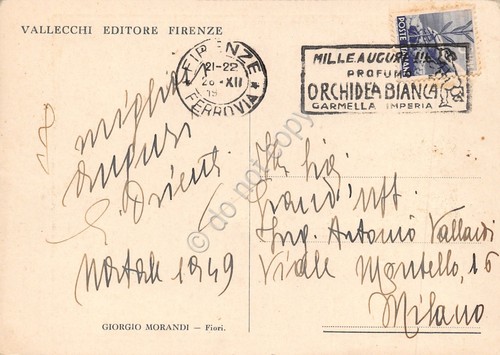 VALLECCHI EDITORE FIRENZE
FIRENZE
21-22
FERROVIA
MILLE AUGURI
PROFUMO
ORCHIDEA BIANCA
GARMELLA IMPERIA
POSTE ITALIANE
I migliori
auguri
Natale 1949
Grand'Uff.
Ing. Antonio Vallardi
Viale Montello, 16
Milano
GIORGIO MORANDI — Fiori.
do not copy